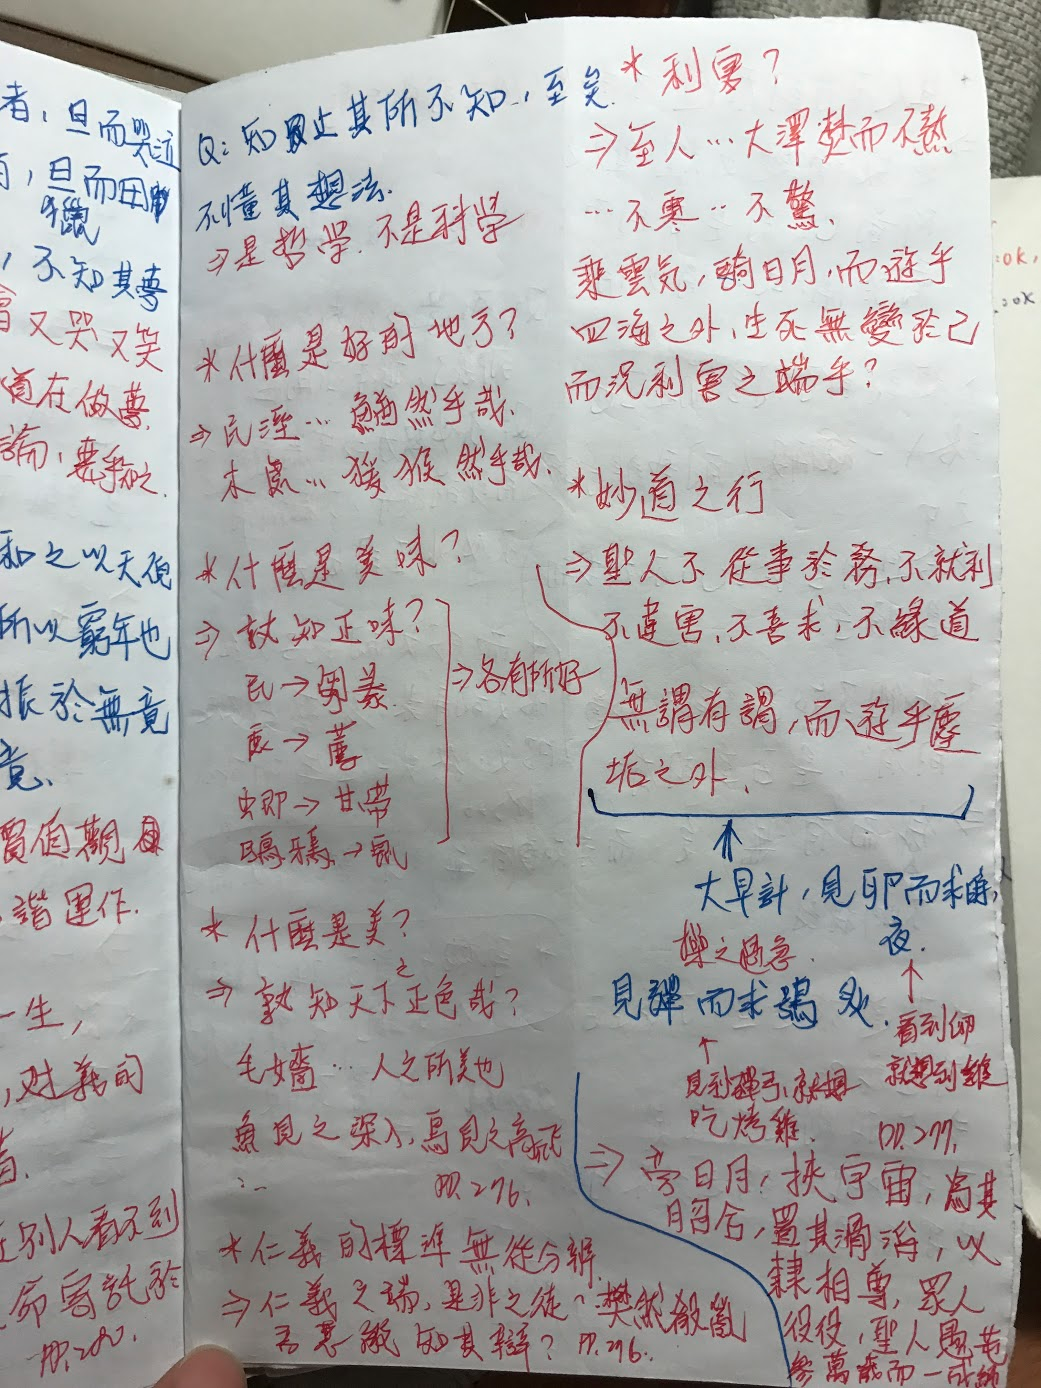 者，旦而哭泣
旦而田
獵
，不知其夢
又哭又笑
道在做夢
論，要
和之以天倪
所以窮年也
振於無竟
竟、
價值觀
諧運作.
一生，
，对義的
在別人看不到
命寄託於
pp.280.
Q: 知止其所不知，至矣.
不懂其想法.
⇒是哲学.不是科学
*什麼是好的地方？
⇒民溼… 鰌然乎哉.
木處… 猨猴然乎哉.
*什麼是美味？
⇒孰知正味？
民→芻豢.
鹿→薦
蝍→甘帶
鴟鴉→鼠
⇒各有所好
*什麼是美？
⇒孰知天下之正色哉？
毛嬙… 人之所美也
魚見之深入，鳥見之高飛
… pp.276.
*仁義的標準無從分辨.
⇒仁義之端，是非之徒，樊然殽亂
吾惡識知其辯？ pp.276.
*利害？
⇒至人…大澤焚而不熱
…不寒…不驚.
乘雲気，騎日月，而遊乎
四海之外，生死無變於己
而況利害之端乎？
*妙道之行
⇒聖人不從事於務，不就利
不違害，不喜求，不緣道
無謂有謂，而遊乎塵
垢之外.
大早計，見卵而求時
夜.
操之過急.
見彈而求鴞炙.
看到卵
就想到雞
見到彈弓，就想
吃烤雞.
pp.277.
⇒旁日月，挾宇宙，為其
脗合，置其滑涽，以
隸相尊，眾人
役役，聖人愚芚
參萬歲而一成純
:ok,
:ok